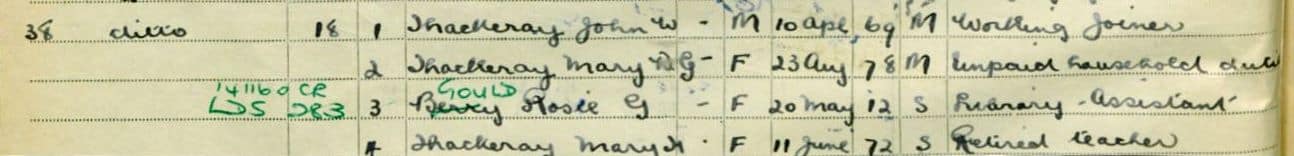 38 ditto 18 1 Thackeray John W - M 10 Apl 69 M Working Joiner
2 Thackeray Mary G - F 23 Aug 78 M Unpaid household
141160 CR GOULD
LDS 283 3 Berry Rosie G - F 20 May 12 S Library - Assistant
4 Thackeray Mary H - F 11 June 72 S Retired teacher